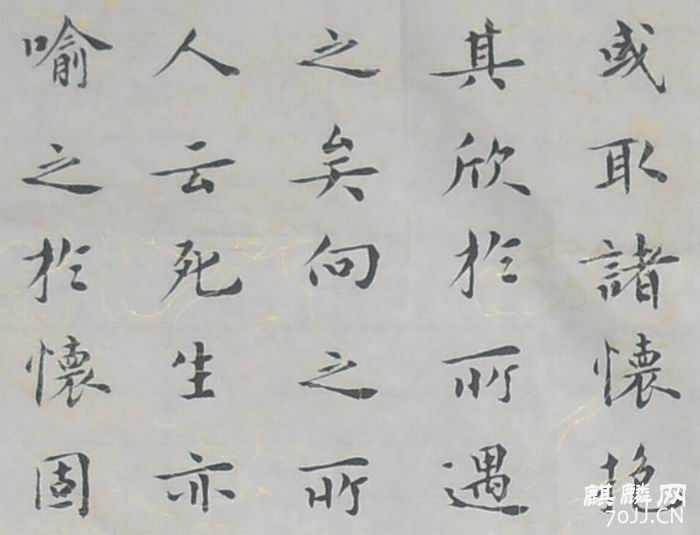 或取諸懷抱
其欣於所遇
之矣向之所
人云死生亦
喻之於懷固
麒麟网
70JJ.CN